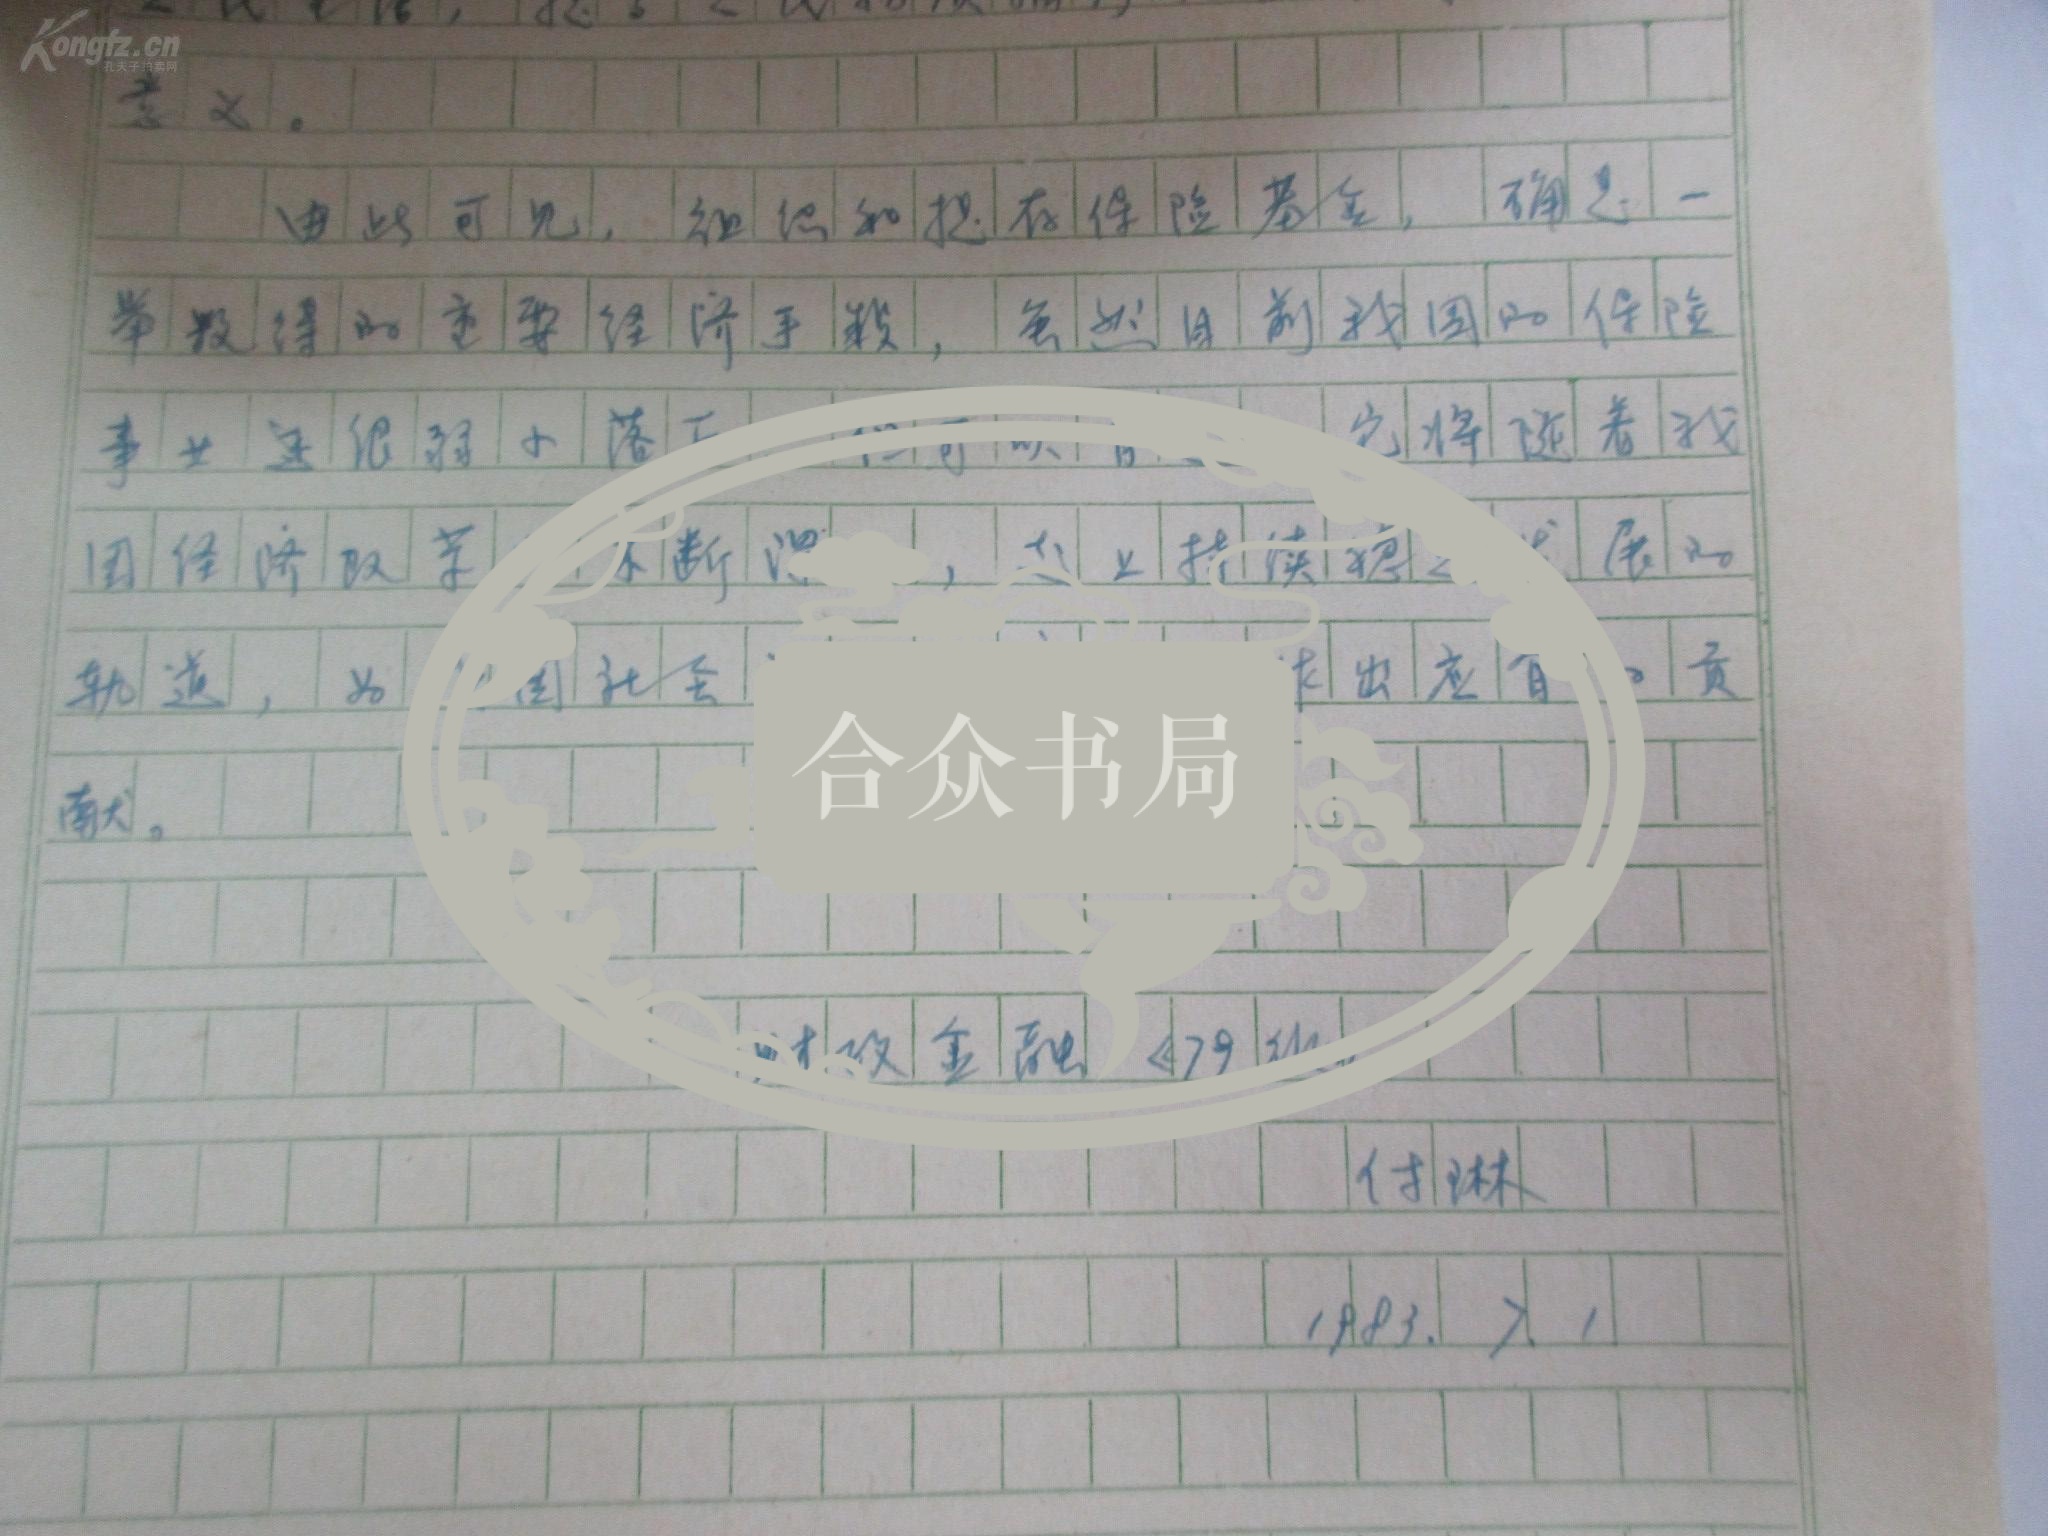 Kongfz.cn
孔夫子拍卖网
意义。
由此可见，组织和提存保险基金，确是一
举数得的重要经济手段，虽然目前我国的保险
事业还很弱小落后 但可以 它将随着我
国经济改革 不断深 ，走上持续稳 发展的
轨道，为 国社会 作出应有的贡
献。
合众书局
财政金融《79
付琳
1983. 7. 1